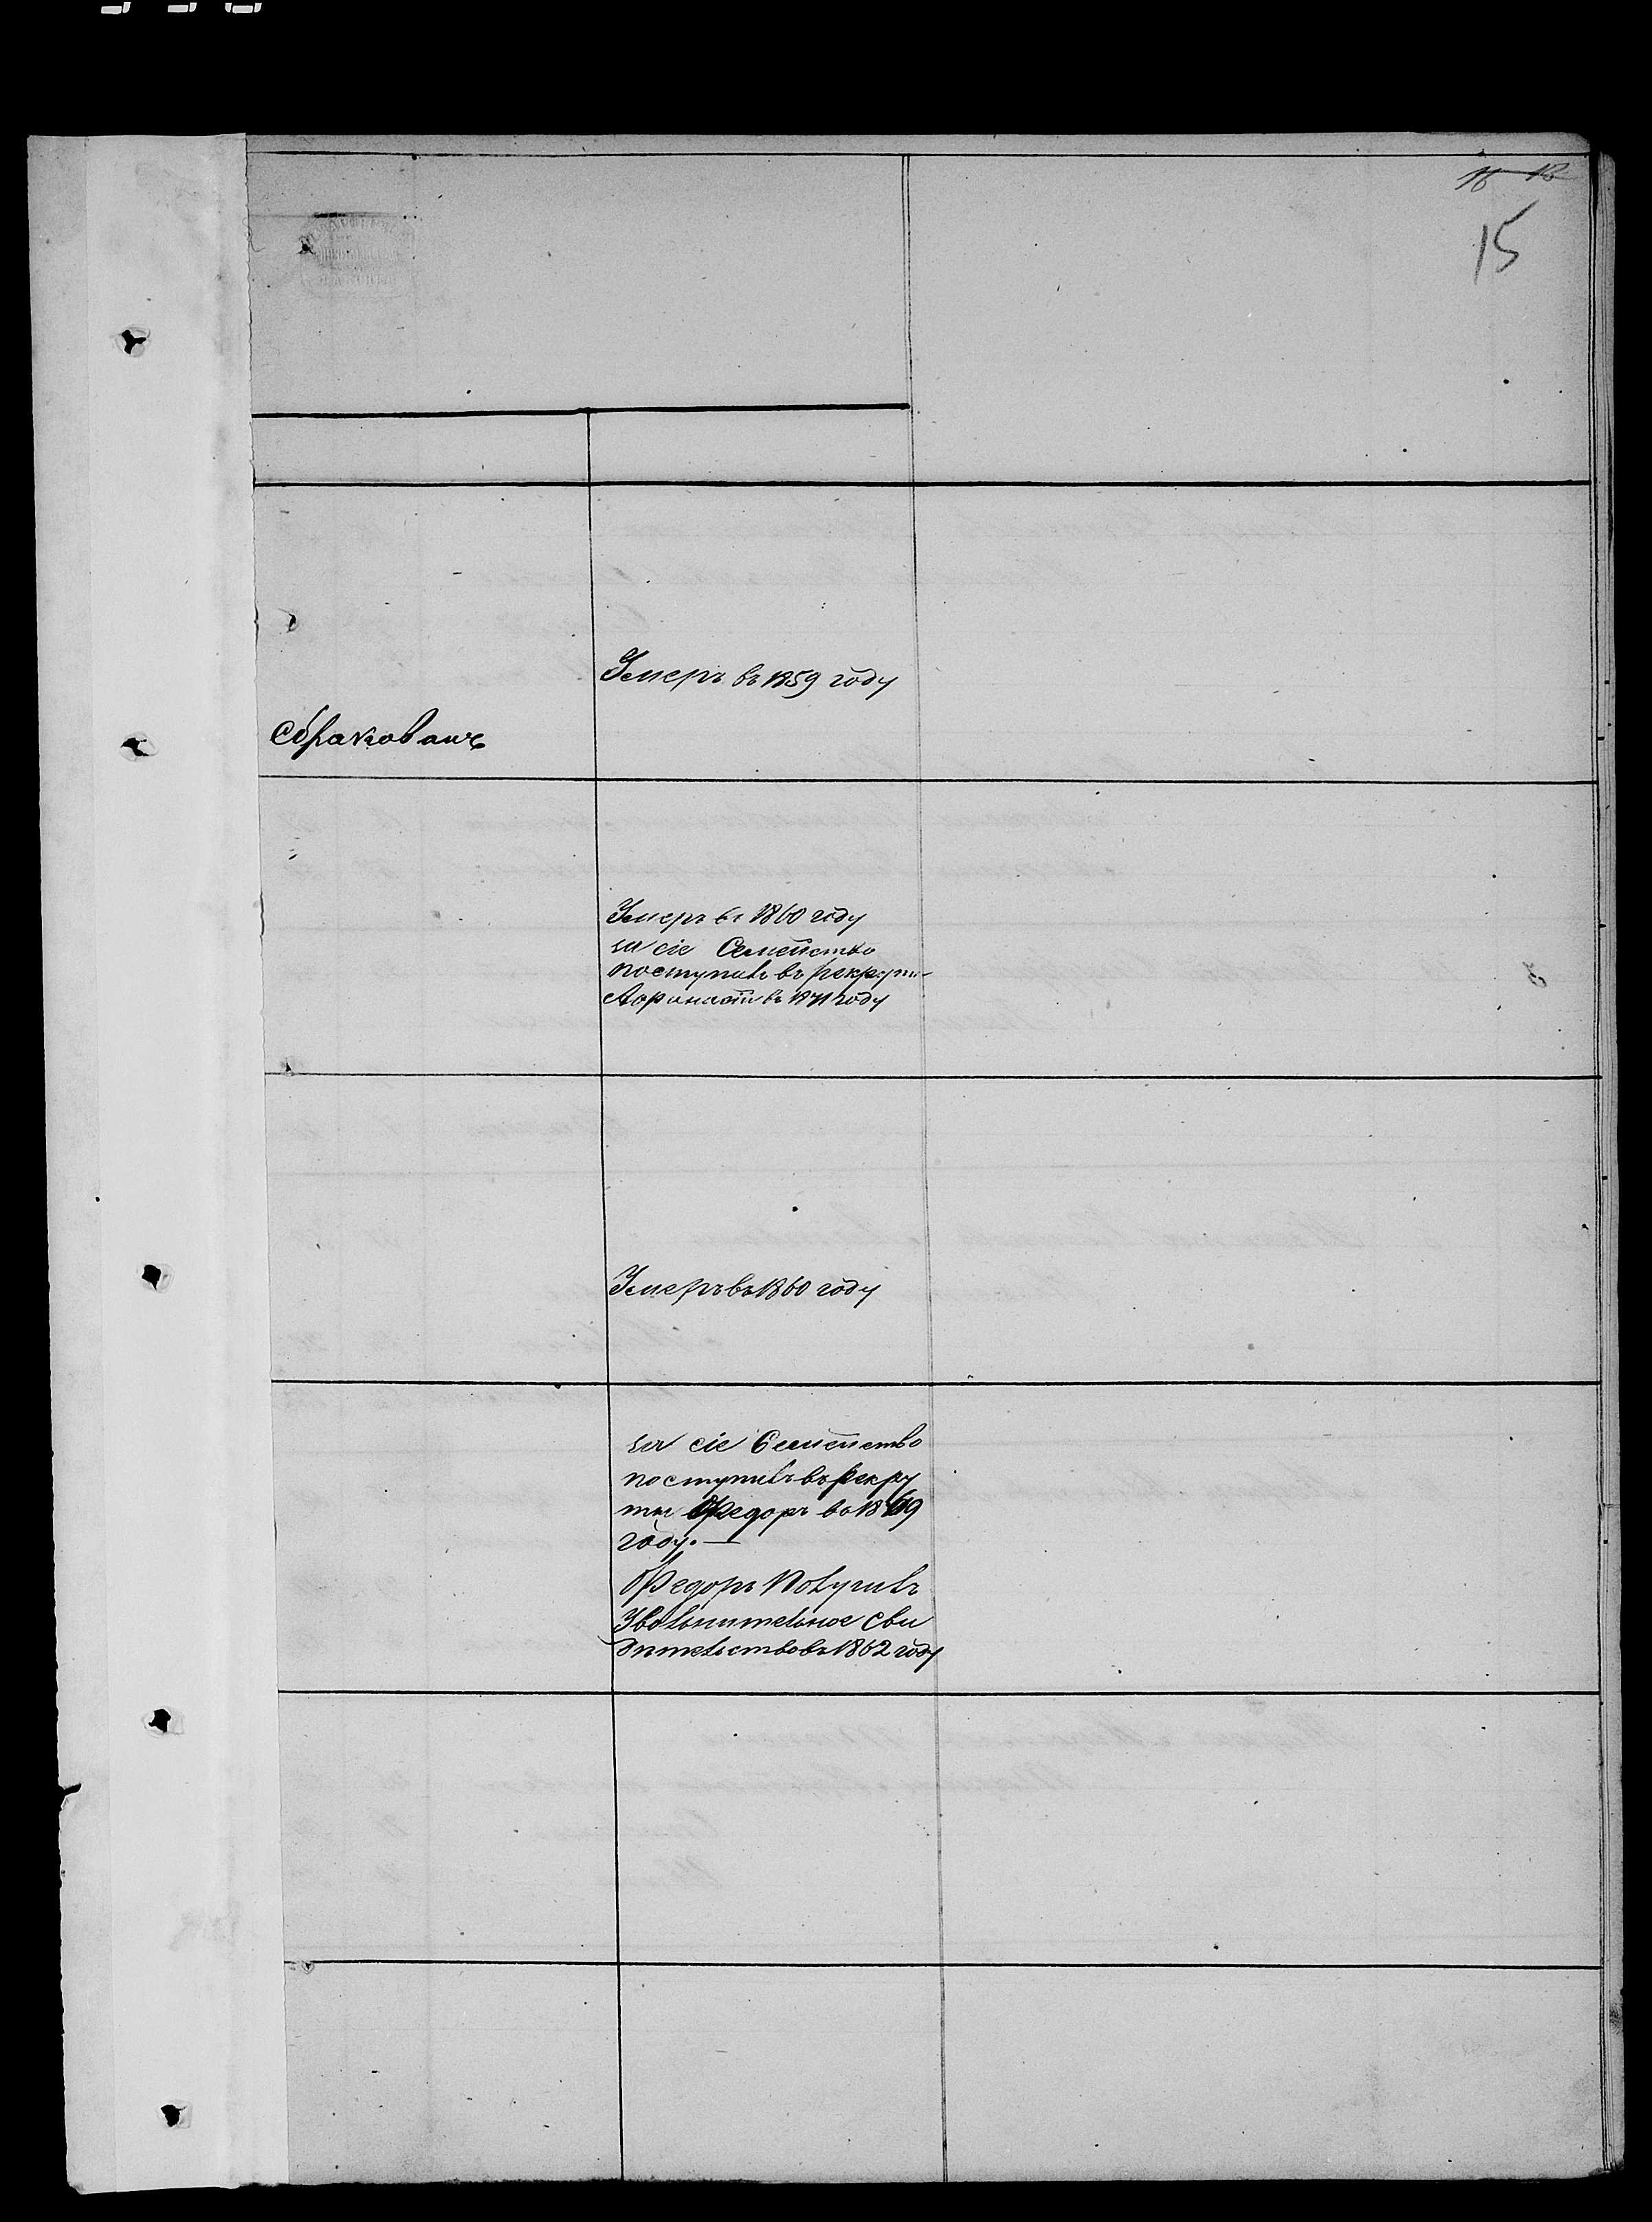 15
Умеръ въ 1859 году
обракованъ
Умеръ въ 1860 году
за сіе Семейство
поступилъ въ рекрути
въ 1871 году
Умеръ въ 1860 году
за сіе Семейство
поступилъ въ рекру
ты Федоръ въ 1869
году. —
Федоръ Получилъ
Увольнительное сви
дѣтельство въ 1862 году